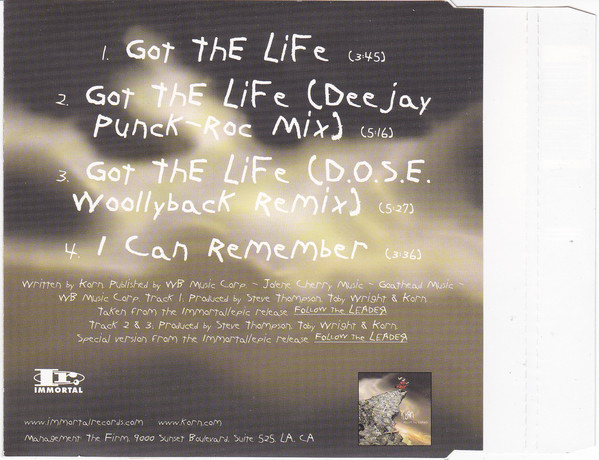 1. Got thE LiFe (3:45)
2. Got thE LiFe (Deejay
Punck-Roc Mix) (5:16)
3. Got thE LiFe (D.O.S.E.
Woollyback Remix) (5:27)
4. I Can Remember (3:36)
Written by Korn. Published by WB Music Corp. ~ Jolene Cherry Music ~ Goathead Music ~
WB Music Corp. Track 1, Produced by Steve Thompson, Toby Wright & Korn.
Taken from the Immortal/epic release Follow the LEADER
Track 2 & 3, Produced by Steve Thompson, Toby Wright & Korn.
Special version from the Immortal/epic release Follow the LEADER
Ir.
IMMORTAL
www.immortalrecords.com www.korn.com
Management: The Firm, 9000 Sunset Boulevard, Suite 525, LA, CA